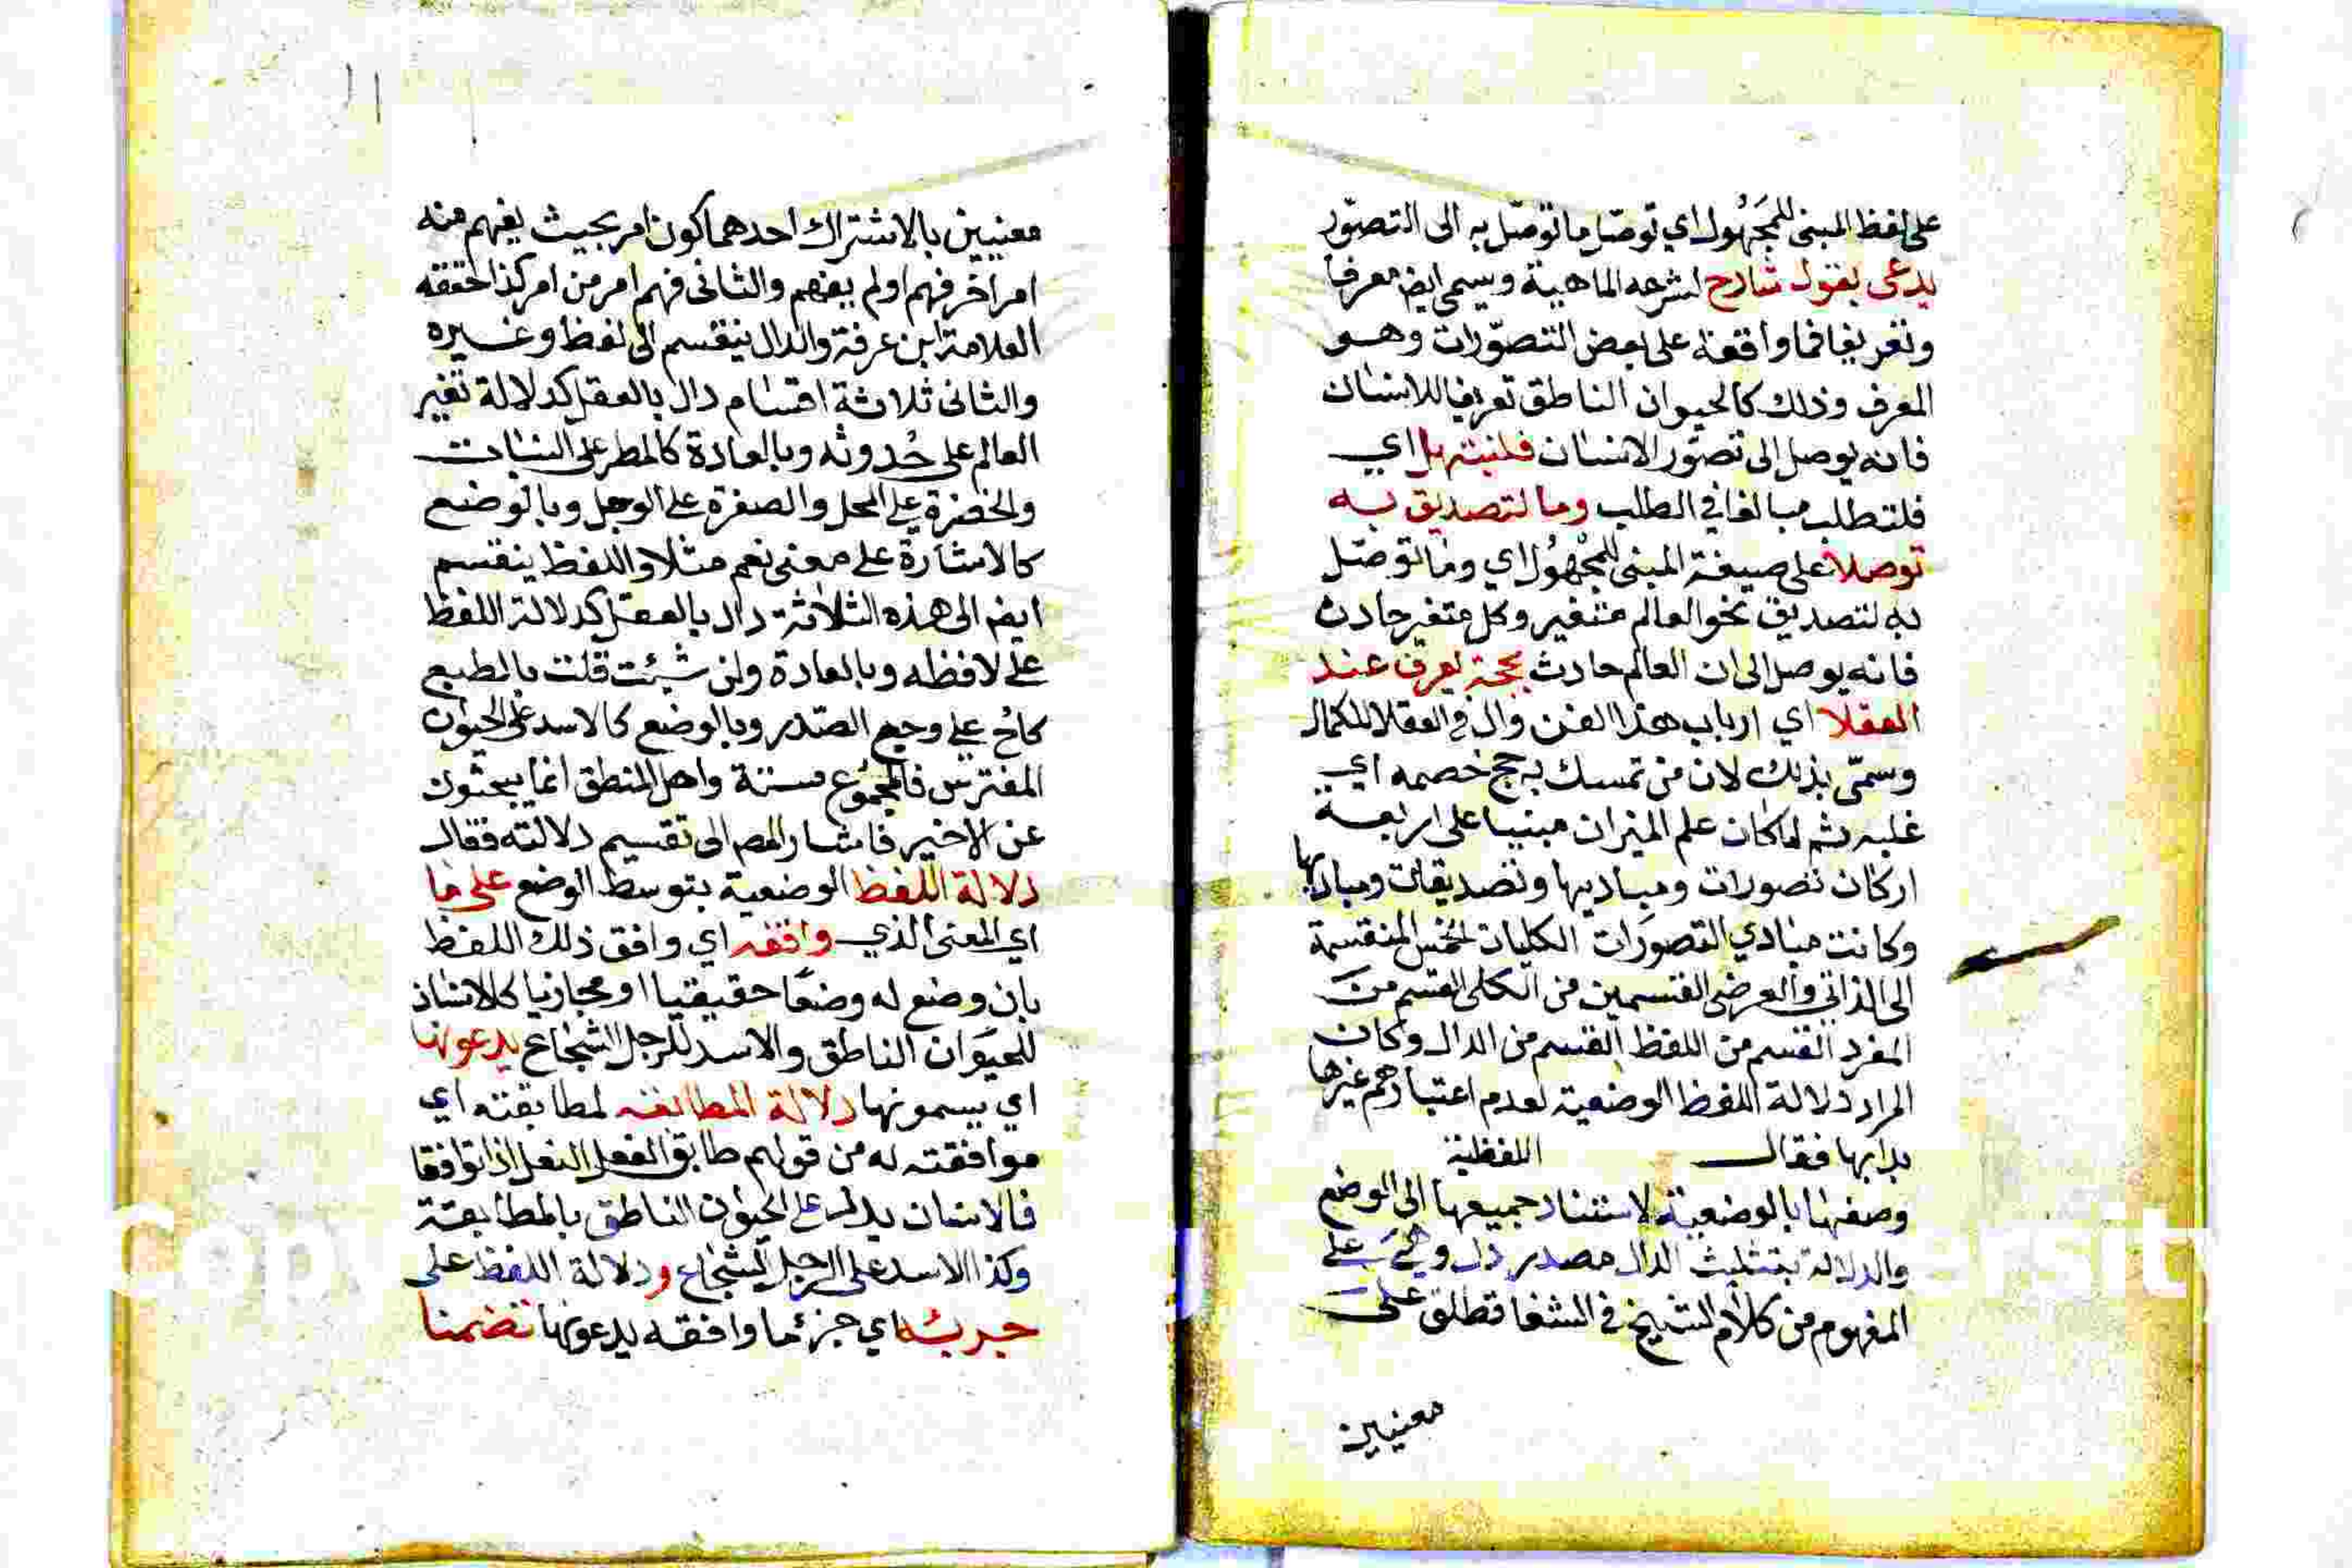 على لفظ المبنى للمجهول اي توصل ما توصل به الى التصور
يدعى بقول شارح لشرحه الماهية ويسمى ايضا معرفا
وتعريفا فما واقعة على بعض التصورات وهو
المعرف وذلك كالحيوان الناطق تعريفا للانسان
فانه يوصل الى تصور الانسان فلتبتهل اي
فلتطلب مبالغا في الطلب وما لتصديق به
توصلا على صيغة المبنى للمجهول اي وما توصل
به لتصديق نحو العالم متغير وكل متغير حادث
فانه يوصل الى ان العالم حادث بحجة يعرف عند
العقلا اي ارباب هذا الفن وال في العقلا للكمال
وسمى بذلك لان من تمسك به حج خصمه اي
غلبه ثم لما كان علم الميزان مبنيا على اربعة
اركان تصورات ومباديها وتصديقات ومباديها
وكانت مبادي التصورات الكليات الخمس المنقسمة
الى الذاتي والعرضى القسمين من الكلى القسم من
المفرد القسم من اللفظ القسم من الدال وكان
المراد دلالة اللفظ الوضعية لعدم اعتبارهم غيرها
بدا بها فقال اللفظية
وصفها بالوضعية لاستناد جميعها الى الوضع
والدلالة بتثليث الدال مصدر دل وهي على
المفهوم من كلام الشيخ في الشفا تطلق على
معنيين
معنيين بالاشتراك احدهما كون امر بحيث يفهم منه
امر اخر فهم او لم يفهم والثانى فهم امر من امر كذا حققه
العلامة ابن عرفة والدال ينقسم الى لفظ وغيره
والثانى ثلاثة اقسام دال بالعقل كدلالة تغير
العالم على حدوثه وبالعادة كالمطر على النبات
والخضرة على المحل والصفرة على الوجل وبالوضع
كالاشارة على معنى نعم مثلا واللفظ ينقسم
ايضا الى هذه الثلاثة دال بالعقل كدلالة اللفظ
على لافظه وبالعادة وان شئت قلت بالطبع
كاح على وجع الصدر وبالوضع كالاسد على الحيوان
المفترس فالمجموع ستة واهل المنطق انما يبحثون
عن الاخير فاشار المص الى تقسيم دلالته فقال
دلالة اللفظ الوضعية بتوسط الوضع على ما
اي المعنى الذي وافقه اي وافق ذلك اللفظ
بان وضع له وضعا حقيقيا او مجازيا كالانسان
للحيوان الناطق والاسد للرجل الشجاع يدعونها
اي يسمونها دلالة المطابقه لمطابقته اي
موافقته له من قولهم طابق الفعل النعل اذا توافقا
فالانسان يدل على الحيوان الناطق بالمطابقة
وكذا الاسد على الرجل الشجاع ودلالة اللفظ على
جزئه اي جزء ما وافقه يدعونها تضمنا